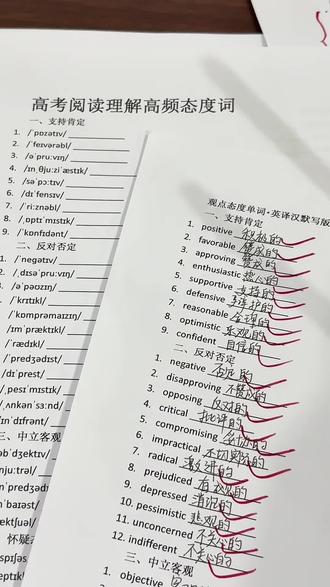 高考阅读理解高频态度词
一、支持肯定
1. /ˈpɒzətɪv/
2. /ˈfeɪvərəbl/
3. /əˈpruːvɪŋ/
4. /ɪnˌθjuːziˈæstɪk/
5. /səˈpɔːtɪv/
6. /dɪˈfensɪv/
7. /ˈriːznəbl/
8. /ˌɒptɪˈmɪstɪk/
9. /ˈkɒnfɪdənt/
二、反对否定
/ˈneɡətɪv/
/ˌdɪsəˈpruːvɪŋ/
/əˈpəʊzɪŋ/
/ˈkrɪtɪkl/
/ˈkɒmprəmaɪzɪŋ/
/ɪmˈpræktɪkl/
/ˈrædɪkl/
/ˈpredʒədɪst/
/dɪˈprest/
/ˌpesɪˈmɪstɪk/
/ˌʌnkənˈsɜːnd/
/ɪnˈdɪfrənt/
三、中立客观
观点态度单词·英译汉默写版
一、支持肯定
1. positive 积极的
2. favorable 赞成的
3. approving 赞成的
4. enthusiastic 热心的
5. supportive 支持的
6. defensive 辩护的
7. reasonable 合理的
8. optimistic 乐观的
9. confident 自信的
二、反对否定
1. negative 否定的
2. disapproving 不赞成的
3. opposing 反对的
4. critical 批评的
5. compromising 妥协的
6. impractical 不切实际的
7. radical 激进的
8. prejudiced 有偏见的
9. depressed 消沉的
10. pessimistic 悲观的
11. unconcerned 不关心的
12. indifferent 不关心的
三、中立客观
1. objective